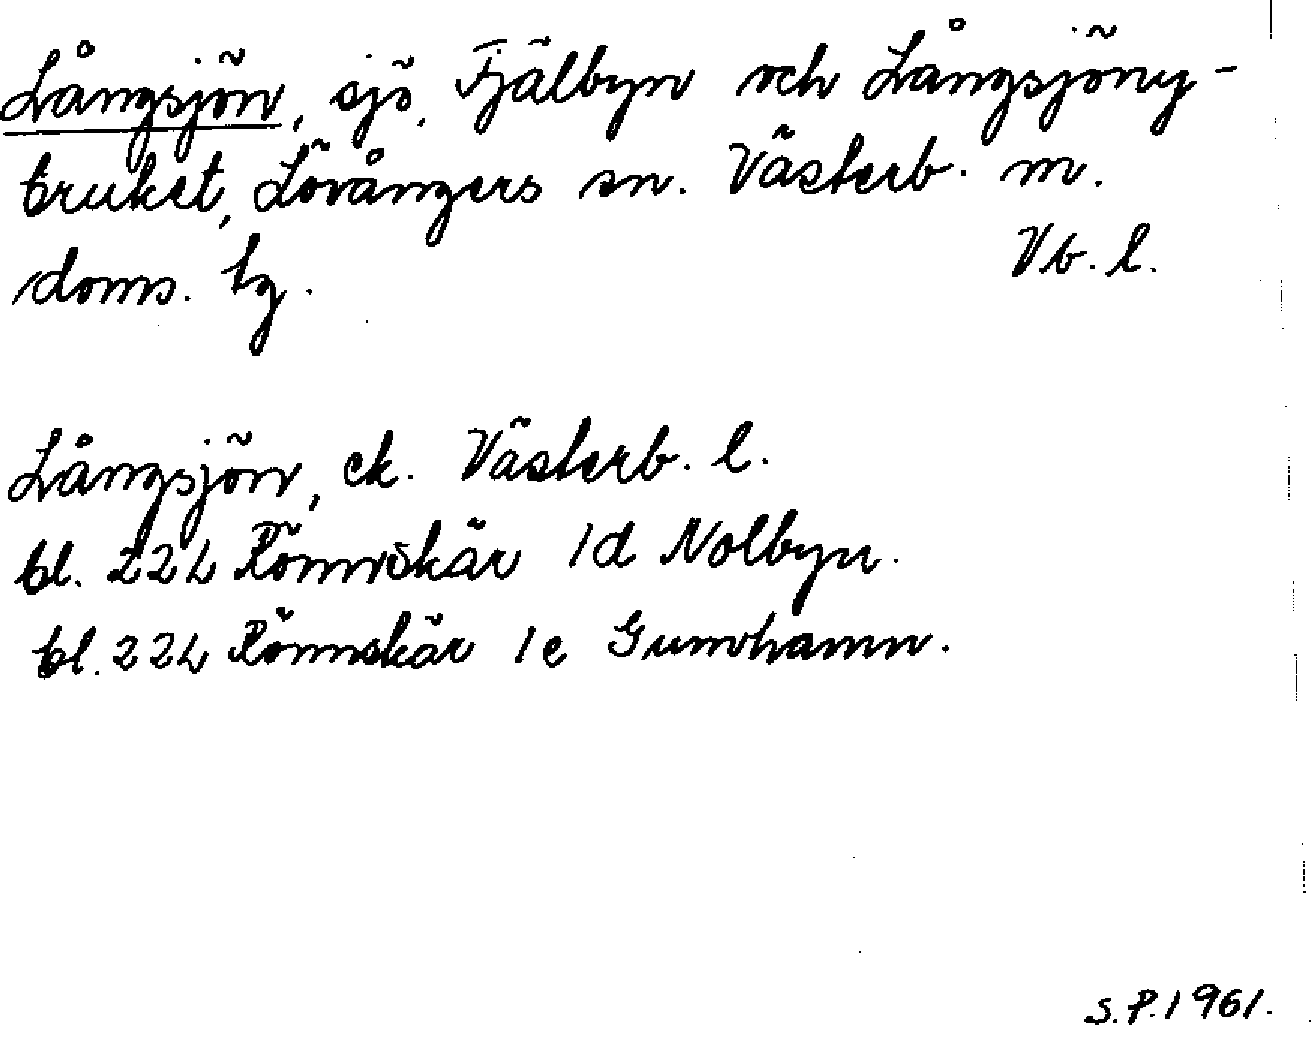 Långsjön, sjö, Fjälbyn och Långsjöny-
bruket, Lövångers sn. Västerb. m.
doms. tg. Vb. l.
Långsjön, ek. Västerb. l.
bl. 22L Rönnskär 1d Nolbyn.
bl. 22L Rönnskär 1e Gumhamn.
S.P. 1961.